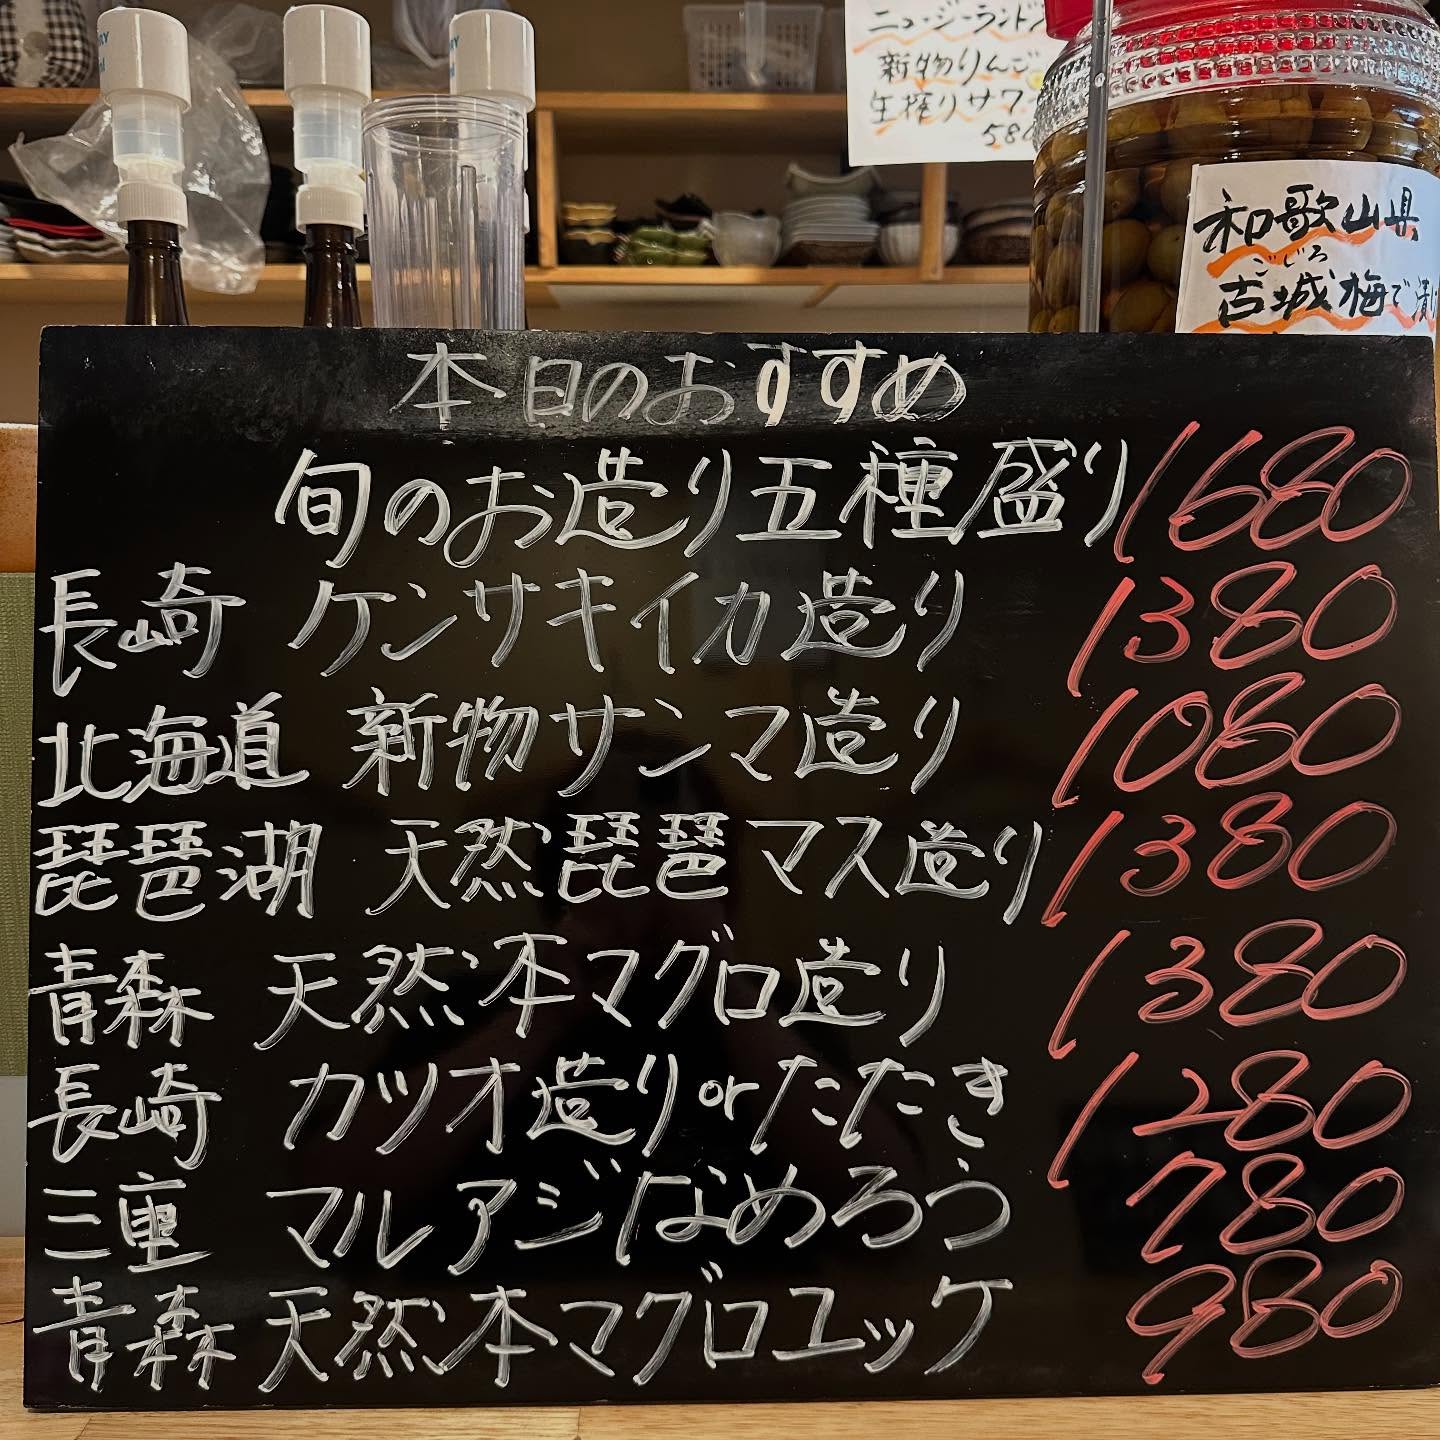 ニュージーランド
新物りんご
生搾りサワー
580
和歌山県
ごじろ
古城梅で漬け
本日のおすすめ
旬のお造り五種盛り 1680
長崎 ケンサキイカ造り 1380
北海道 新物サンマ造り 1080
琵琶湖 天然琵琶マス造り 1380
青森 天然本マグロ造り 1380
長崎 カツオ造りorたたき 1280
三重 マルアジなめろう 780
青森 天然本マグロユッケ 980